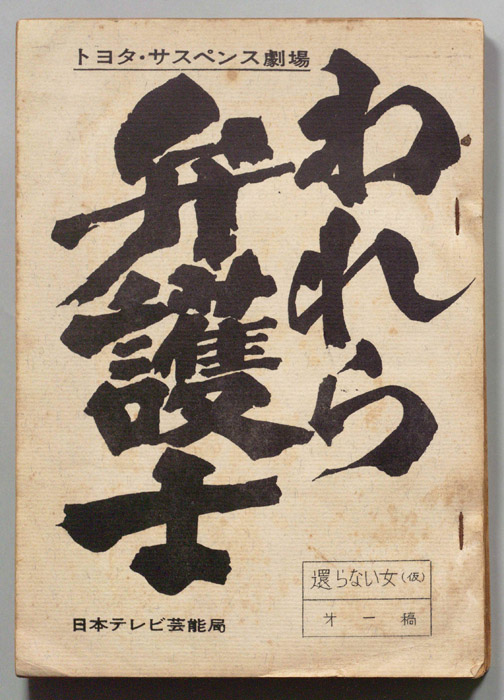 トヨタ・サスペンス劇場
われら
弁護士
還らない女(仮)
才一稿
日本テレビ芸能局